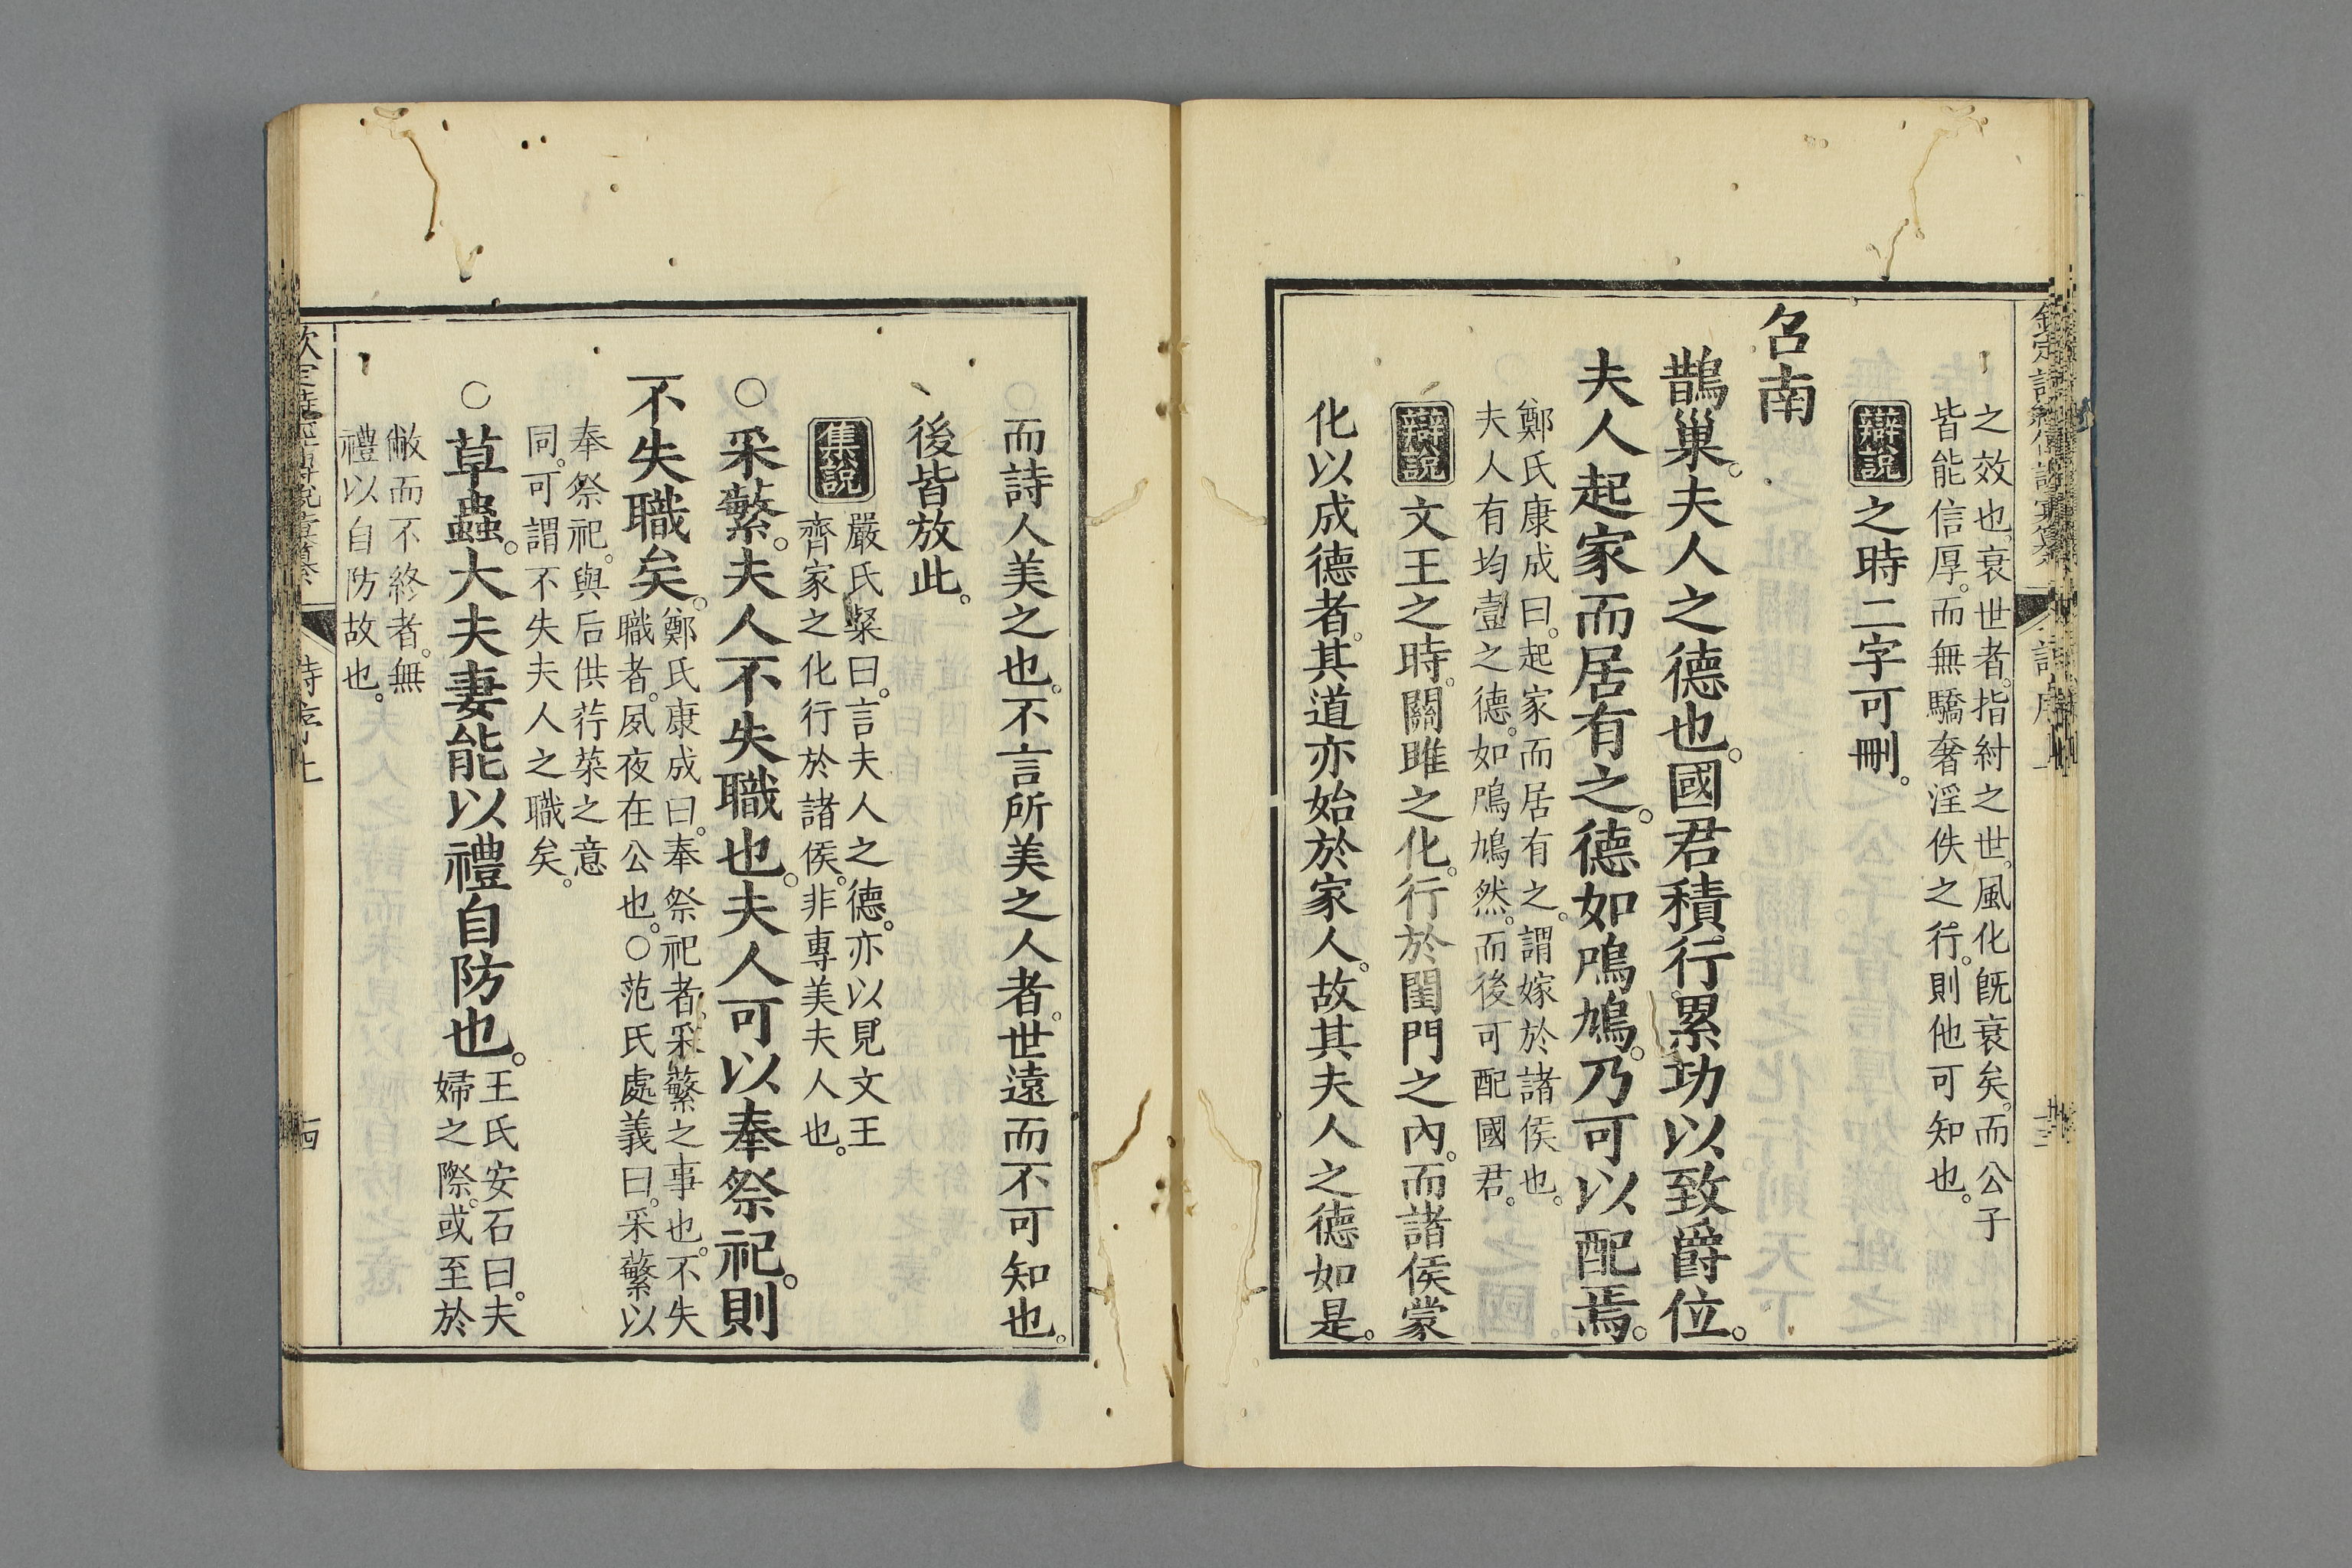 之效也。衰世者。指紂之世。風化旣衰矣。而公子
皆能信厚。而無驕奢淫佚之行。則他可知也。
辯說 之時二字可刪。
召南
鵲巢。夫人之德也。國君積行累功以致爵位。
夫人起家而居有之。德如鳲鳩。乃可以配焉。
鄭氏康成曰。起家而居有之。謂嫁於諸侯也。
夫人有均壹之德。如鳲鳩然。而後可配國君。
辯說 文王之時。關雎之化。行於閨門之內。而諸侯蒙
化以成德者。其道亦始於家人。故其夫人之德如是。
而詩人美之也。不言所美之人者。世遠而不可知也。
後皆放此。
集說 嚴氏粲曰。言夫人之德。亦以見文王
齊家之化行於諸侯。非專美夫人也。
○采蘩。夫人不失職也。夫人可以奉祭祀。則
不失職矣。
鄭氏康成曰。奉祭祀者。采蘩之事也。不失
職者。夙夜在公也。○范氏處義曰。采蘩以
奉祭祀。與后供荇菜之意
同。可謂不失夫人之職矣。
○草蟲。大夫妻能以禮自防也。
王氏安石曰。夫
婦之際。或至於
敝而不終者。無
禮以自防故也。
詩序上